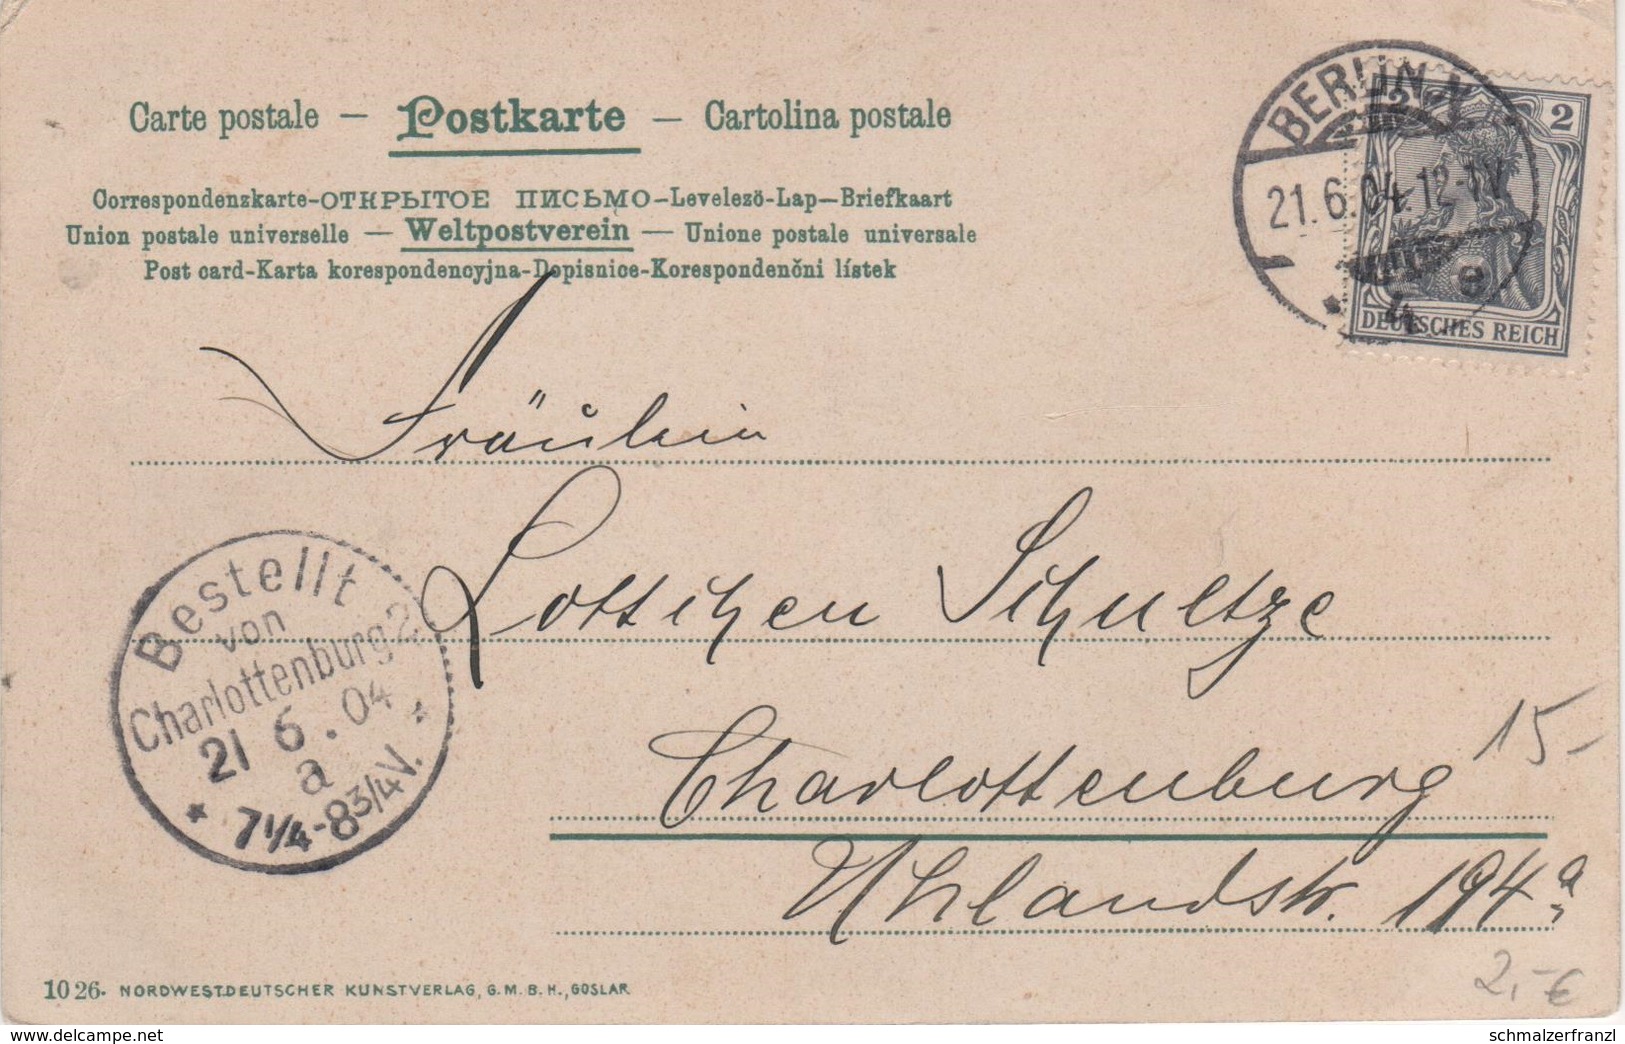 Carte postale — Postkarte — Cartolina postale
Correspondenzkarte-ОТКРЫТОЕ ПИСЬМО-Levelezö-Lap—Briefkaart
Union postale universelle — Weltpostverein — Unione postale universale
Post card-Karta korespondencyjna-Dopisnice-Korespondenčni lístek
BERLIN
21.6.04.12-1V
e
2
DEUTSCHES REICH
Fräulein
Lottchen Schultze
Charlottenburg
Uhlandstr. 194a
Bestellt
von
Charlottenburg 2
21 6.04
a
7 1/4-8 3/4 V.
15-
2,-€
1026. NORDWESTDEUTSCHER KUNSTVERLAG, G.M.B.H., GOSLAR
schmalzerfranzl